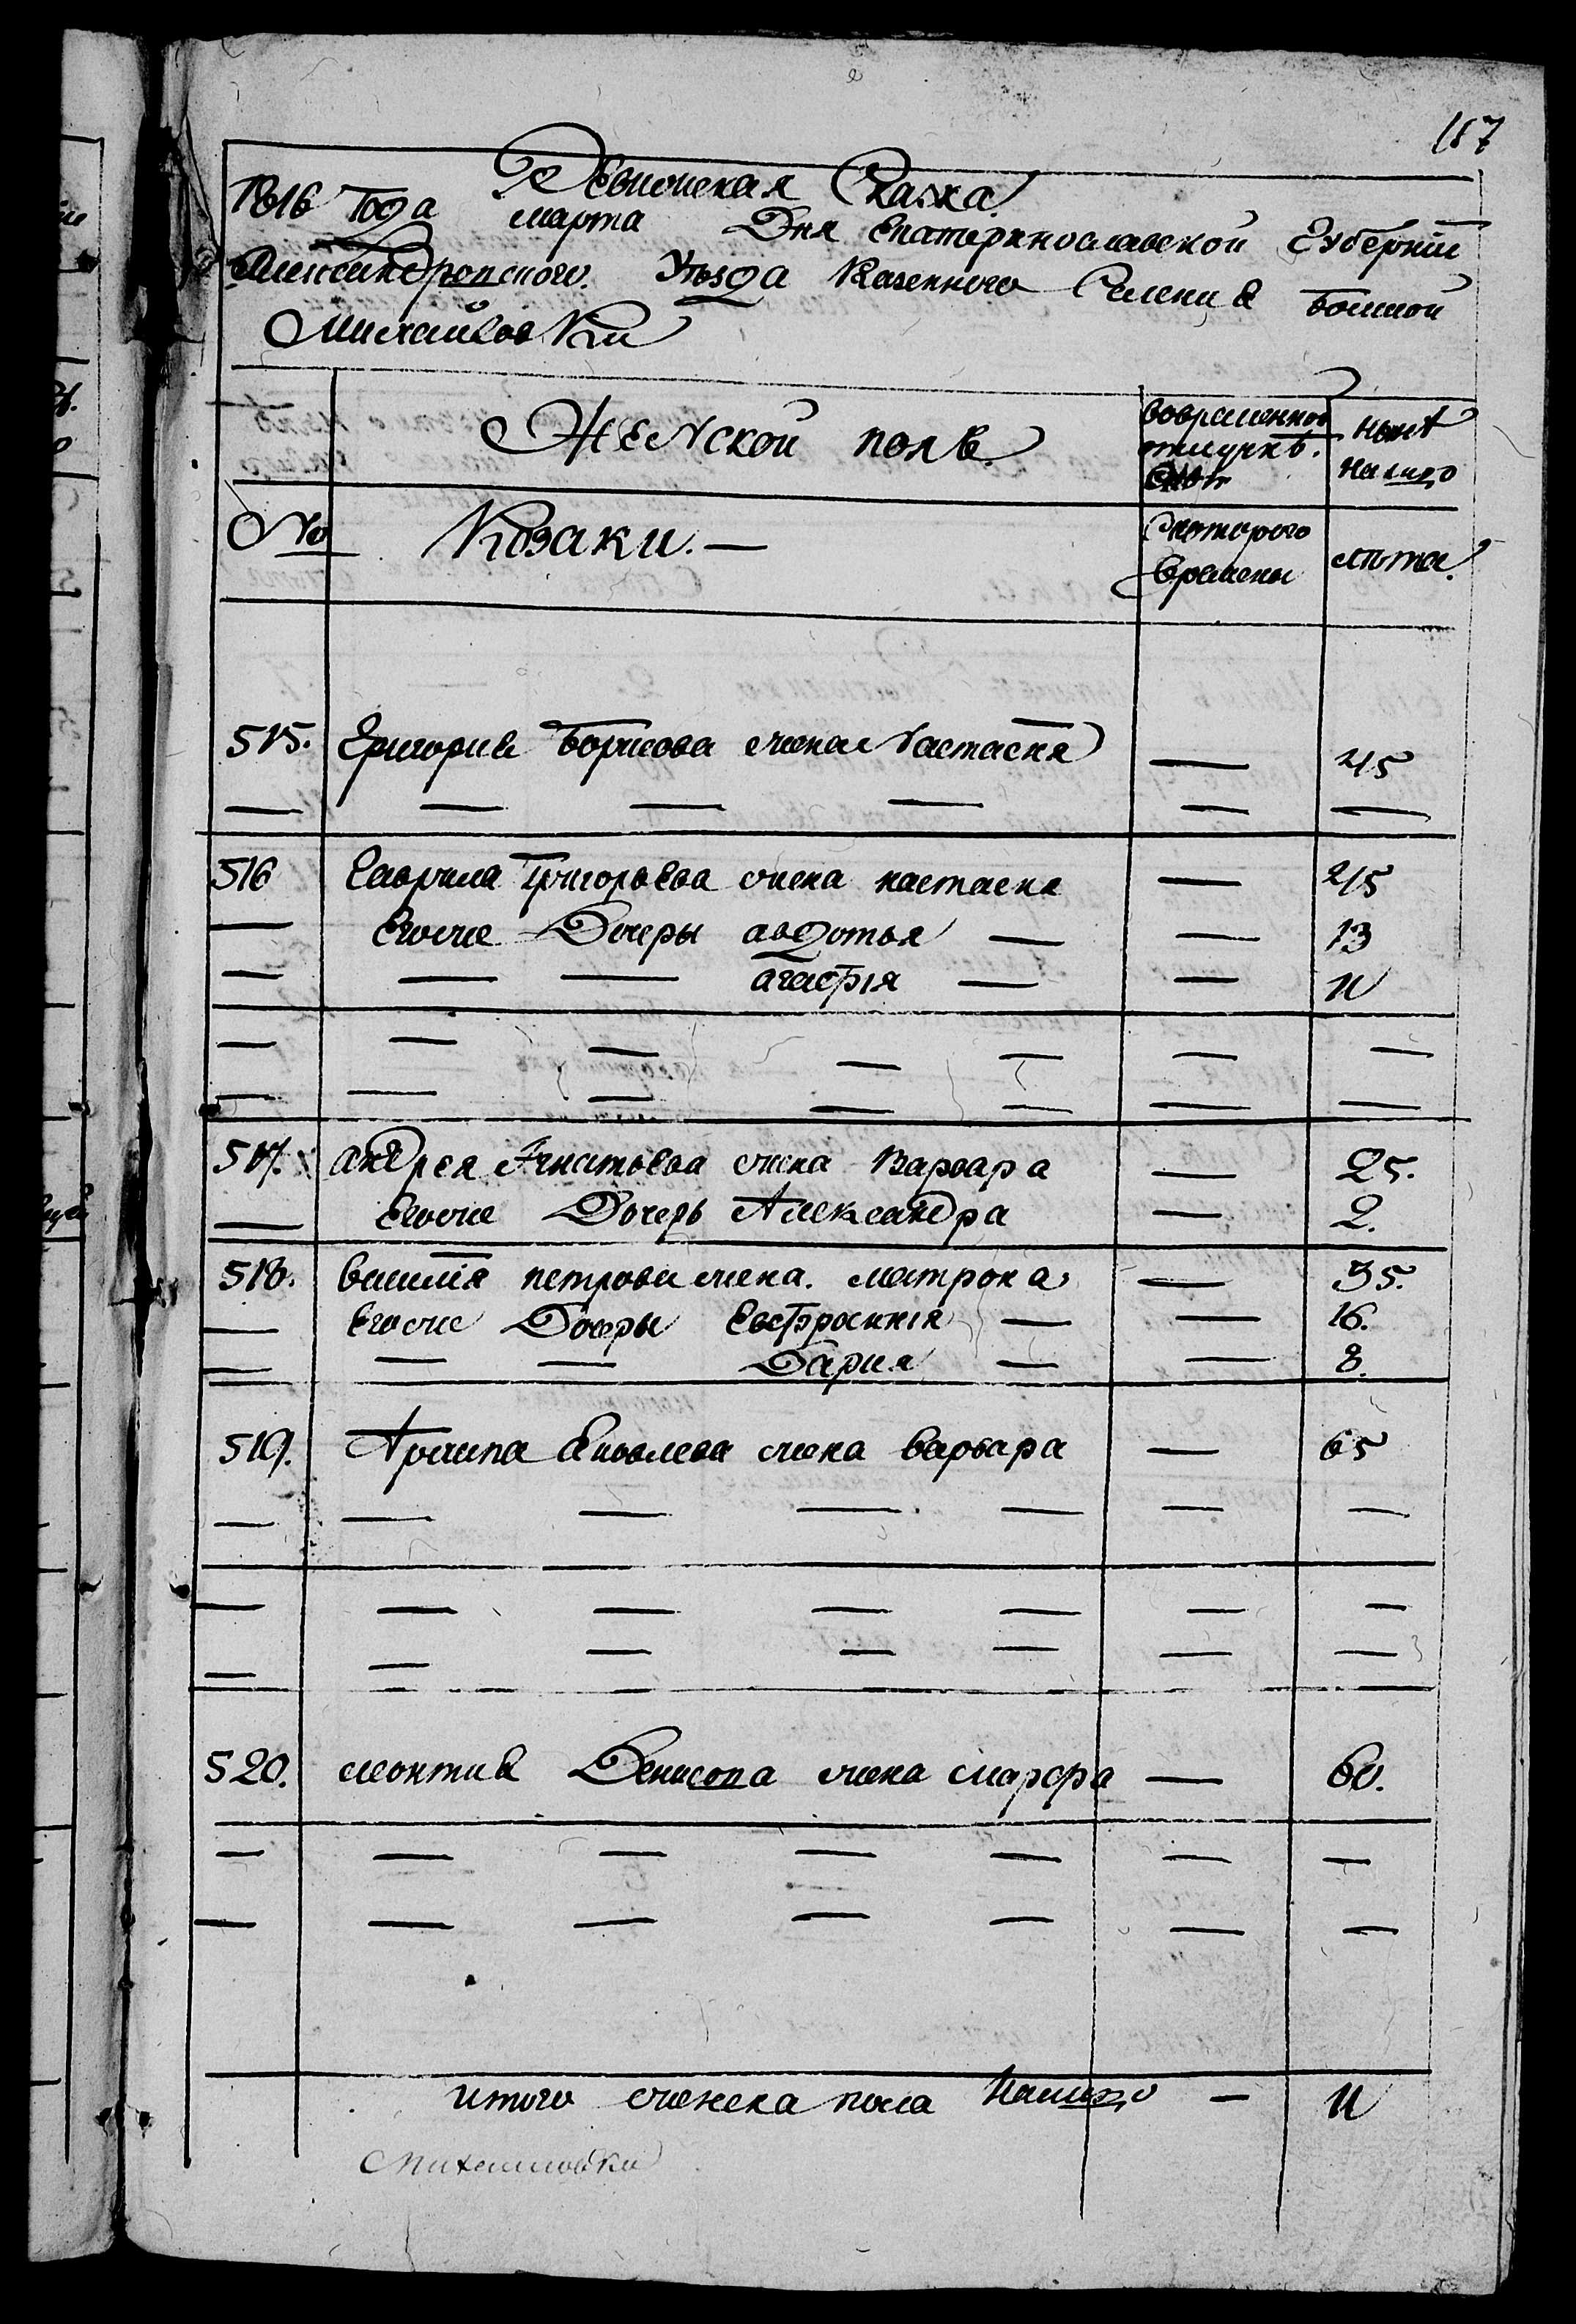 117
Ревизская Сказка
1816 Года марта Дня Екатеринославской Губернїи
Александровского Уѣзда Казенного Селения Большой
Михайловки
Женской полъ
вовременной отлучкѣ.
нынѣ налицо
№
Козаки. —
Скоторого времены
лѣта.
515. Григория Борисова жена Настасия — 45
516 Гаврила Григорьева жена настасия — 45
Егоже Дочеры авдотья — — 13
— — агафїя — — 11
517. андрея Игнатьева жена Варвара — 25.
Егоже Дочерь Александра — 2.
518. василїя петрова жена. матрона — 35.
Егоже Дочеры Евфросинїя — — 16.
— — Дария — — 8.
519. Архипа Яковлева жена варвара — 65
520. леонтия Денисова жена марфа — 60.
итого женска пола Налицо — 11
Михайловки